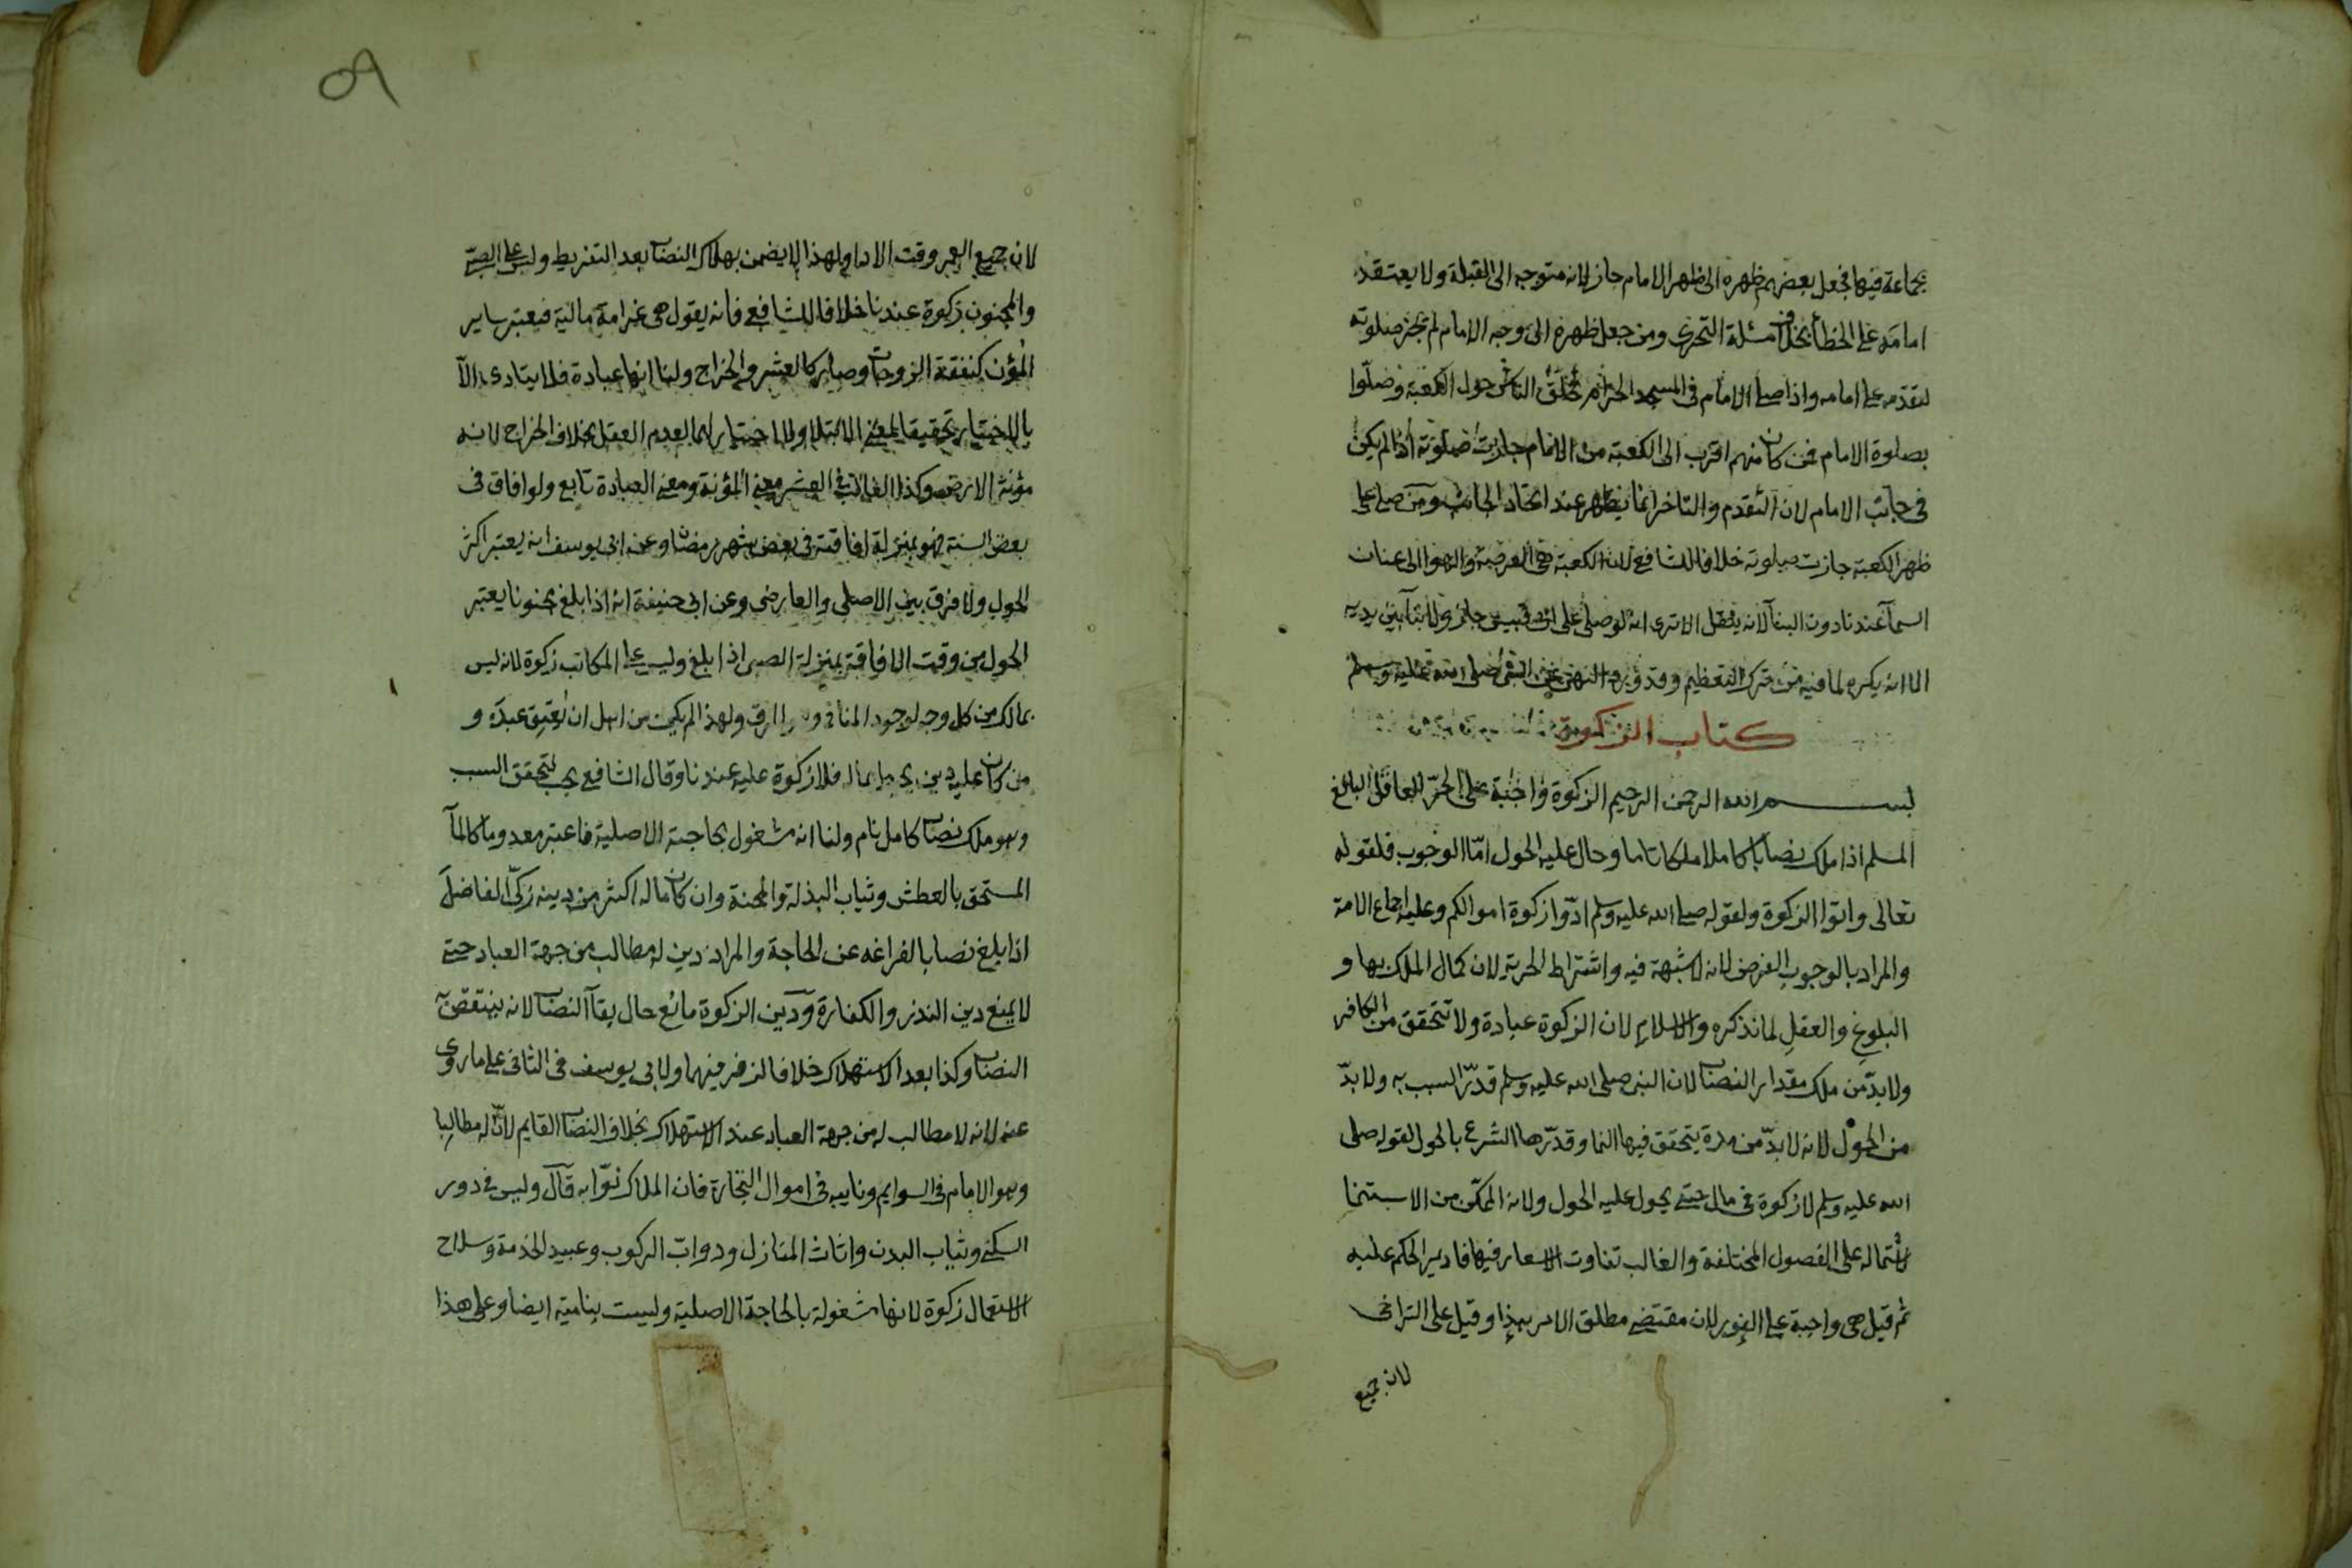 بجماعة فيها فجعل بعضهم ظهره الى ظهر الامام جاز لانه متوجه الى القبلة ولا يعتقد
امامه على الخطأ بخلاف مسئلة التحرى ومن جعل ظهره الى وجه الامام لم تجز صلوته
لتقدمه على امامه واذا صلى الامام فى المسجد الحرام تحلق الناس حول الكعبة وصلّوا
بصلوة الامام فمن كان منهم اقرب الى الكعبة من الامام جازت صلوته اذا لم يكن
فى جانب الامام لان التقدم والتاخر انما يظهر عند اتحاد الجانب ومن صلى على
ظهر الكعبة جازت صلوته خلافا للشافعى لان الكعبة هى العرصة والهوا الى عنان
السمآ عندنا دون البنآ لانه ينقل الا ترى انه لو صلى على ابى قبيس جاز ولا بنآ بين يديه
الا انه يكره لما فيه من ترك التعظيم وقد ورد النهى عن النبى صلى الله عليه وسلم
كتاب الزكوة
بسم الله الرحمن الرحيم الزكوة واجبة على الحرّ العاقل البالغ
المسلم اذا ملك نصابا كاملا ملكا تاما وحال عليه الحول امّا الوجوب فلقوله
تعالى واتوا الزكوة ولقوله صلى الله عليه وسلم ادّوا زكوة اموالكم وعليه اجماع الامة
والمراد بالوجوب الفرض لانه لا شبهة فيه واشتراط الحرية لان كمال الملك بها و
البلوغ والعقل لما نذكره والاسلام لان الزكوة عبادة ولا تتحقق من الكافر
ولا بدّ من ملك مقدار النصاب لان النبى صلى الله عليه وسلم قدّر السبب به ولا بدّ
من الحول لانه لا بدّ من مدة يتحقق فيها النما وقدّرها الشرع بالحول لقوله صلى
الله عليه وسلم لا زكوة فى مال حتى يحول عليه الحول ولانه الممكّن من الاستنما
لاشتماله على الفصول المختلفة والغالب تفاوت الاسعار فيها فادير الحكم عليه
ثم قيل هى واجبة على الفور لان مقتضى مطلق الامر بهذا وقيل على التراخى
لان جميع
٥٩
لان جميع العمر وقت الادا ولهذا لا يضمن بهلاك النصاب بعد التفريط وليس على الصبى
والمجنون زكوة عندنا خلافا للشافعى فانه يقول هى غرامة مالية فيعتبر بساير
المؤن كنفقة الزوجات وصار كالعشر والخراج ولنا انها عبادة فلا يتادى الا
بالاختيار تحقيقا لمعنى الابتلا ولا اختيار لهما لعدم العقل بخلاف الخراج لانه
مؤنة الارض وكذا الغالب فى العشر معنى المؤنة ومعنى العبادة تابع ولو افاق فى
بعض السنة فهو بمنزلة افاقته فى بعض شهر رمضان وعن ابى يوسف انه يعتبر اكثر
الحول ولا فرق بين الاصلى والعارضى وعن ابى حنيفة انه اذا بلغ مجنونا يعتبر
الحول من وقت الافاقة بمنزلة الصبى اذا بلغ وليس على المكاتب زكوة لانه ليس
بمالك من كل وجه لوجود المنافى وهو الرق ولهذا لم يكن من اهل ان يعتق عبده و
من كان عليه دين يحيط بماله فلا زكوة عليه عندنا وقال الشافعى يجب لتحقق السبب
وهو ملك نصاب كامل نام ولنا انه مشغول بحاجته الاصلية فاعتبر معدوما كالمآ
المستحق بالعطش وثياب البذلة والمهنة وان كان ماله اكثر من دينه زكّى الفاضل
اذا بلغ نصابا لفراغه عن الحاجة والمراد دين له مطالب من جهة العباد حتى
لا يمنع دين النذر والكفارة ودين الزكوة مانع حال بقآ النصاب لانه ينتقض به
النصاب وكذا بعد الاستهلاك خلافا لزفر فيهما ولابى يوسف فى الثانى على ما روى
عنه لانه لا مطالب له من جهة العباد عند الاستهلاك بخلاف النصاب القايم لانّ له مطالبا
وهو الامام فى السوايم ونايبه فى اموال التجارة فان الملاك نوّابه قال وليس فى دور
السكنى وثياب البدن واثاث المنازل ودوابّ الركوب وعبيد الخدمة وسلاح
الاستعمال زكوة لانها مشغولة بالحاجة الاصلية وليست بنامية ايضا وعلى هذا